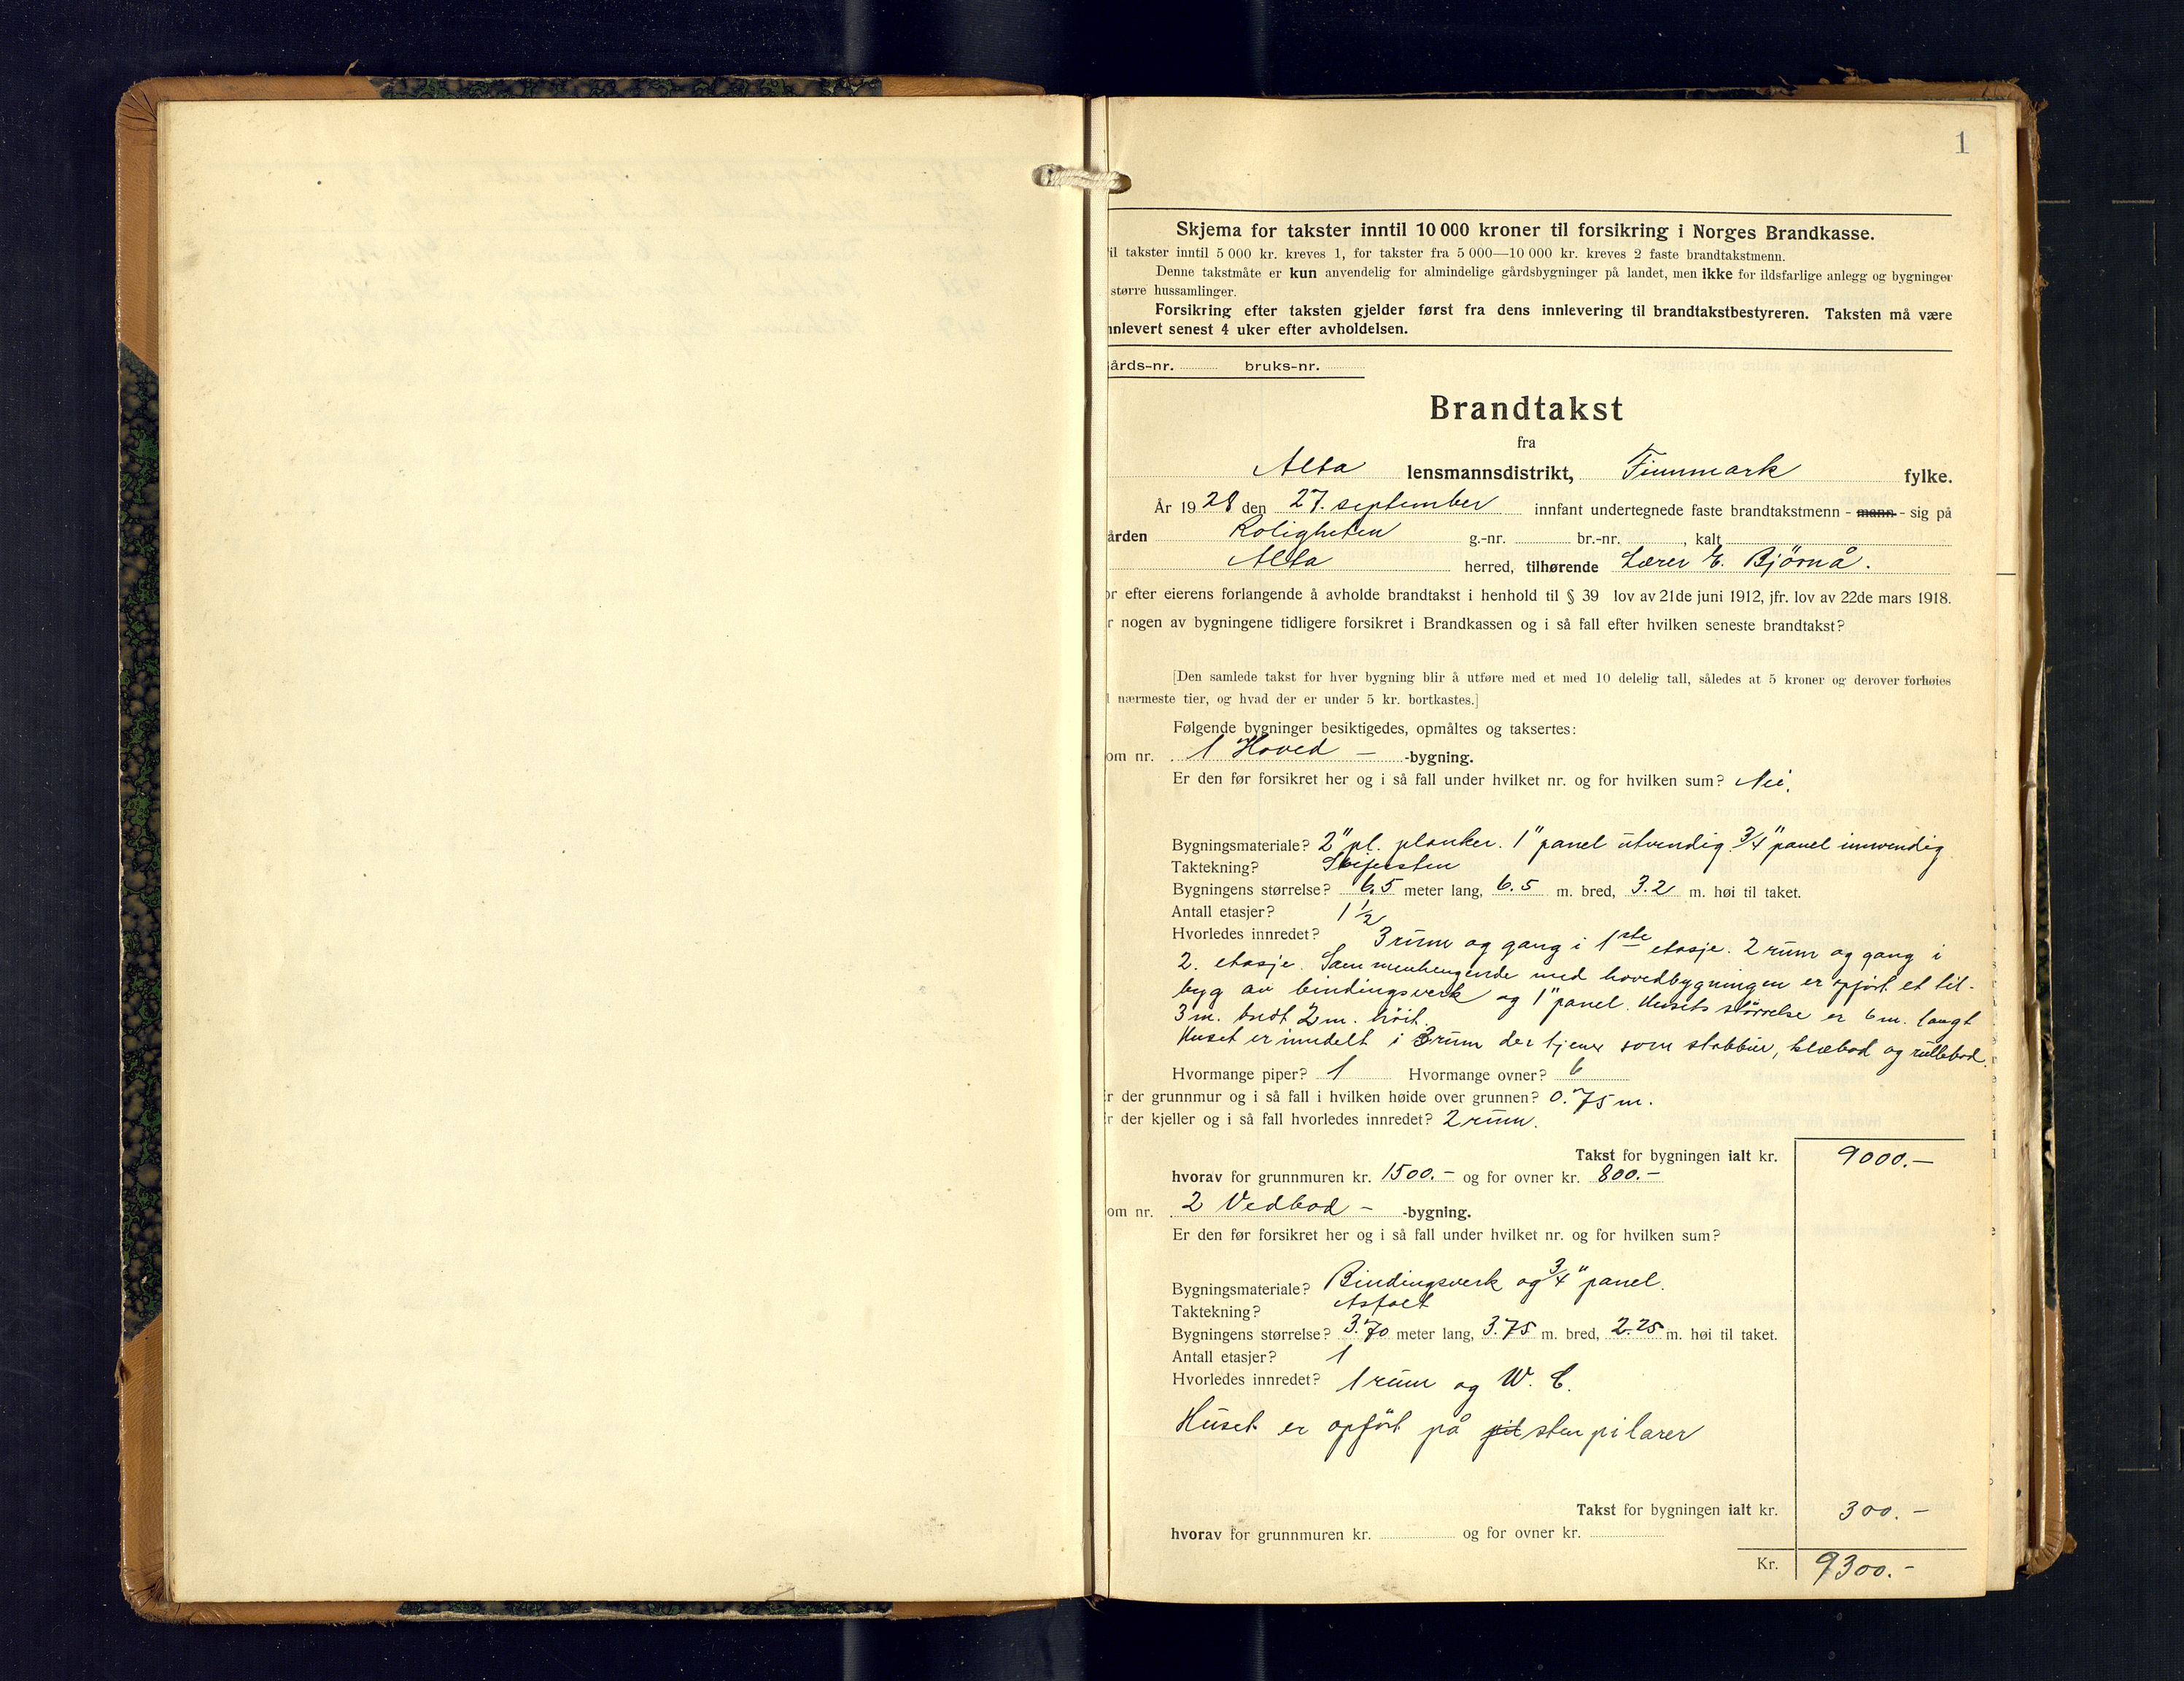 1
Skjema for takster inntil 10 000 kroner til forsikring i Norges Brandkasse.
il takster inntil 5 000 kr. kreves 1, for takster fra 5 000—10 000 kr. kreves 2 faste brandtakstmenn.
Denne takstmåte er kun anvendelig for almindelige gårdsbygninger på landet, men ikke for ildsfarlige anlegg og bygninger
større hussamlinger.
Forsikring efter taksten gjelder først fra dens innlevering til brandtakstbestyreren. Taksten må være
nnlevert senest 4 uker efter avholdelsen.
årds-nr. bruks-nr.
Brandtakst
fra
Alta lensmannsdistrikt, Finnmark fylke.
År 1928 den 27. september innfant undertegnede faste brandtakstmenn - mann - sig på
ården Roligheten g.-nr. br.-nr. , kalt
Alta herred, tilhørende Lærer E. Bjørnå.
or efter eierens forlangende å avholde brandtakst i henhold til § 39 lov av 21de juni 1912, jfr. lov av 22de mars 1918.
r nogen av bygningene tidligere forsikret i Brandkassen og i så fall efter hvilken seneste brandtakst?
[Den samlede takst for hver bygning blir å utføre med et med 10 delelig tall, således at 5 kroner og derover forhøies
l nærmeste tier, og hvad der er under 5 kr. bortkastes.]
Følgende bygninger besiktigedes, opmåltes og taksertes:
om nr. 1 Hoved - -bygning.
Er den før forsikret her og i så fall under hvilket nr. og for hvilken sum? Nei.
Bygningsmateriale? 2" pl. planker. 1" panel utvendig. 3/4" panel innvendig
Taktekning? Skifersten
Bygningens størrelse? 6,5 meter lang, 6.5 m. bred, 3.2 m. høi til taket.
Antall etasjer? 1 1/2
Hvorledes innredet? 3 rum og gang i 1ste etasje. 2 rum og gang i
2. etasje. Sammenhengende med hovedbygningen er opført et til-
byg av bindingsverk og 1" panel. Husets størrelse er 6 m. langt
3 m. bredt 2 m. høit.
Huset er inndelt i 3 rum der tjener som stabbur, klæbod og rullebod.
Hvormange piper? 1 Hvormange ovner? 6
r der grunnmur og i så fall i hvilken høide over grunnen? 0.75 m.
r der kjeller og i så fall hvorledes innredet? 2 rum.
Takst for bygningen ialt kr. 9000.-
hvorav for grunnmuren kr. 1500.- og for ovner kr. 800.-
om nr. 2 Vedbod - -bygning.
Er den før forsikret her og i så fall under hvilket nr. og for hvilken sum?
Bygningsmateriale? Bindingsverk og 3/4" panel.
Taktekning? Asfalt
Bygningens størrelse? 3.70 meter lang, 3.75 m. bred, 2.25 m. høi til taket.
Antall etasjer? 1
Hvorledes innredet? 1 rum og W. C.
Huset er opført på pil stenpilarer
Takst for bygningen ialt kr. 300.-
hvorav for grunnmuren kr. og for ovner kr.
Kr. 9300.-